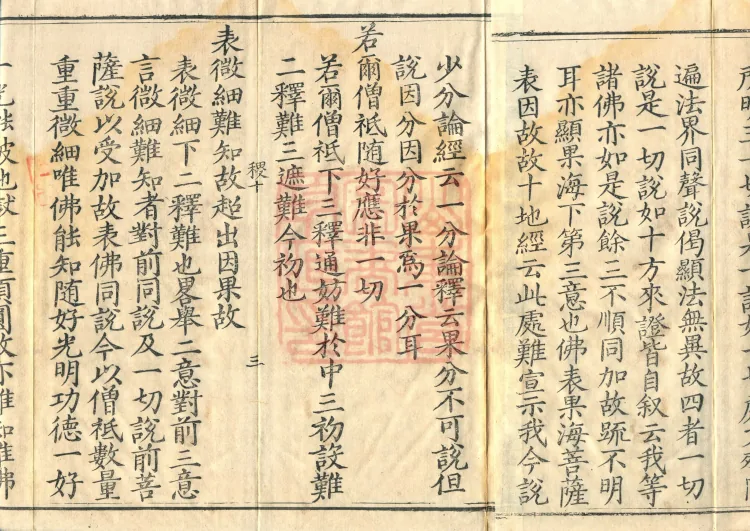 遍法界同聲說偈顯法無異故四者一切
說是一切說如十方來證皆自叙云我等
諸佛亦如是說餘三不順同加故䟽不明
耳亦顯果海下第三意也佛表果海菩薩
表因故故十地經云此處難宣示我今說
少分論經云一分論釋云果分不可說但
說因分因分於果爲一分耳
若爾僧祇隨好應非一切
若爾僧祇下三釋通妨難於中三初設難
二釋難三遮難今初也
表微細難知故超出因果故
稷十
三
表微細下二釋難也畧舉二意對前三意
言微細難知者對前同說及一切說前菩
薩說以受加故表佛同說今以僧祇數量
重重微細唯佛能知隨好光明功德一好